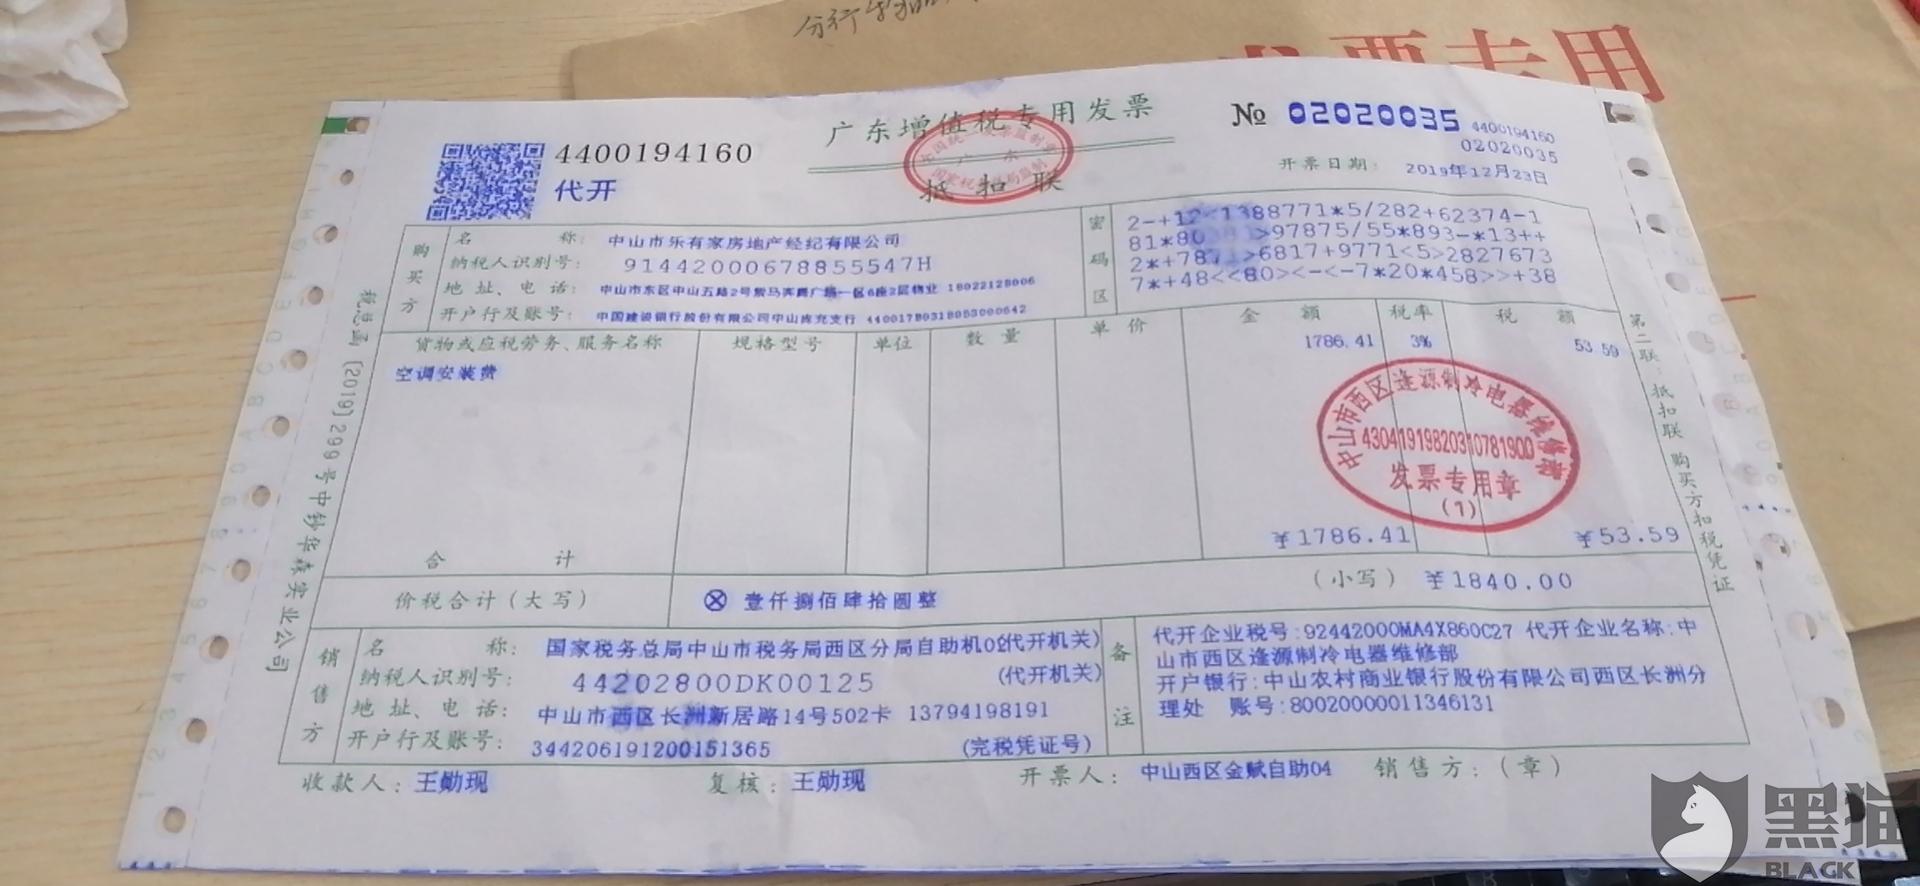 分行
发票专用
广东增值税专用发票
№ 02020035
4400194160
02020035
4400194160
代开
抵扣联
开票日期: 2019年12月23日
购买方
名 称: 中山市乐有家房地产经纪有限公司
纳税人识别号: 91442000678855547H
地 址、电 话: 中山市东区中山五路2号紫马奔腾广场一区6座2层物业 18022128006
开户行及账号: 中国建设银行股份有限公司中山库充支行 44001780318053000642
密码区
2-+12<1388771*5/282+62374-1
81*80 >97875/55*893-*13++
2*+787 >6817+9771<5>2827673
7*+48<<80><-<-7*20*458>>+38
货物或应税劳务、服务名称 规格型号 单位 数量 单价 金额 税率 税额
空调安装费 1786.41 3% 53.59
中山市西区逢源制冷电器维修部
43041919820310781900
发票专用章
(1)
合 计 ¥1786.41 ¥53.59
价税合计(大写) ⊗ 壹仟捌佰肆拾圆整 (小写) ¥1840.00
销售方
名 称: 国家税务总局中山市税务局西区分局自助机02(代开机关)
纳税人识别号: 44202800DK00125 (代开机关)
地 址、电 话: 中山市西区长洲新居路14号502卡 13794198191
开户行及账号: 344206191200151365 (完税凭证号)
备注
代开企业税号:92442000MA4X860C27 代开企业名称:中
山市西区逢源制冷电器维修部
开户银行:中山农村商业银行股份有限公司西区长洲分
理处 账号:80020000011346131
收款人: 王勋现 复核: 王勋现 开票人: 中山西区金赋自助04 销售方:(章)
税总函[2019]299号中钞华森实业公司
第二联:抵扣联 购买方扣税凭证
黑猫
BLACK